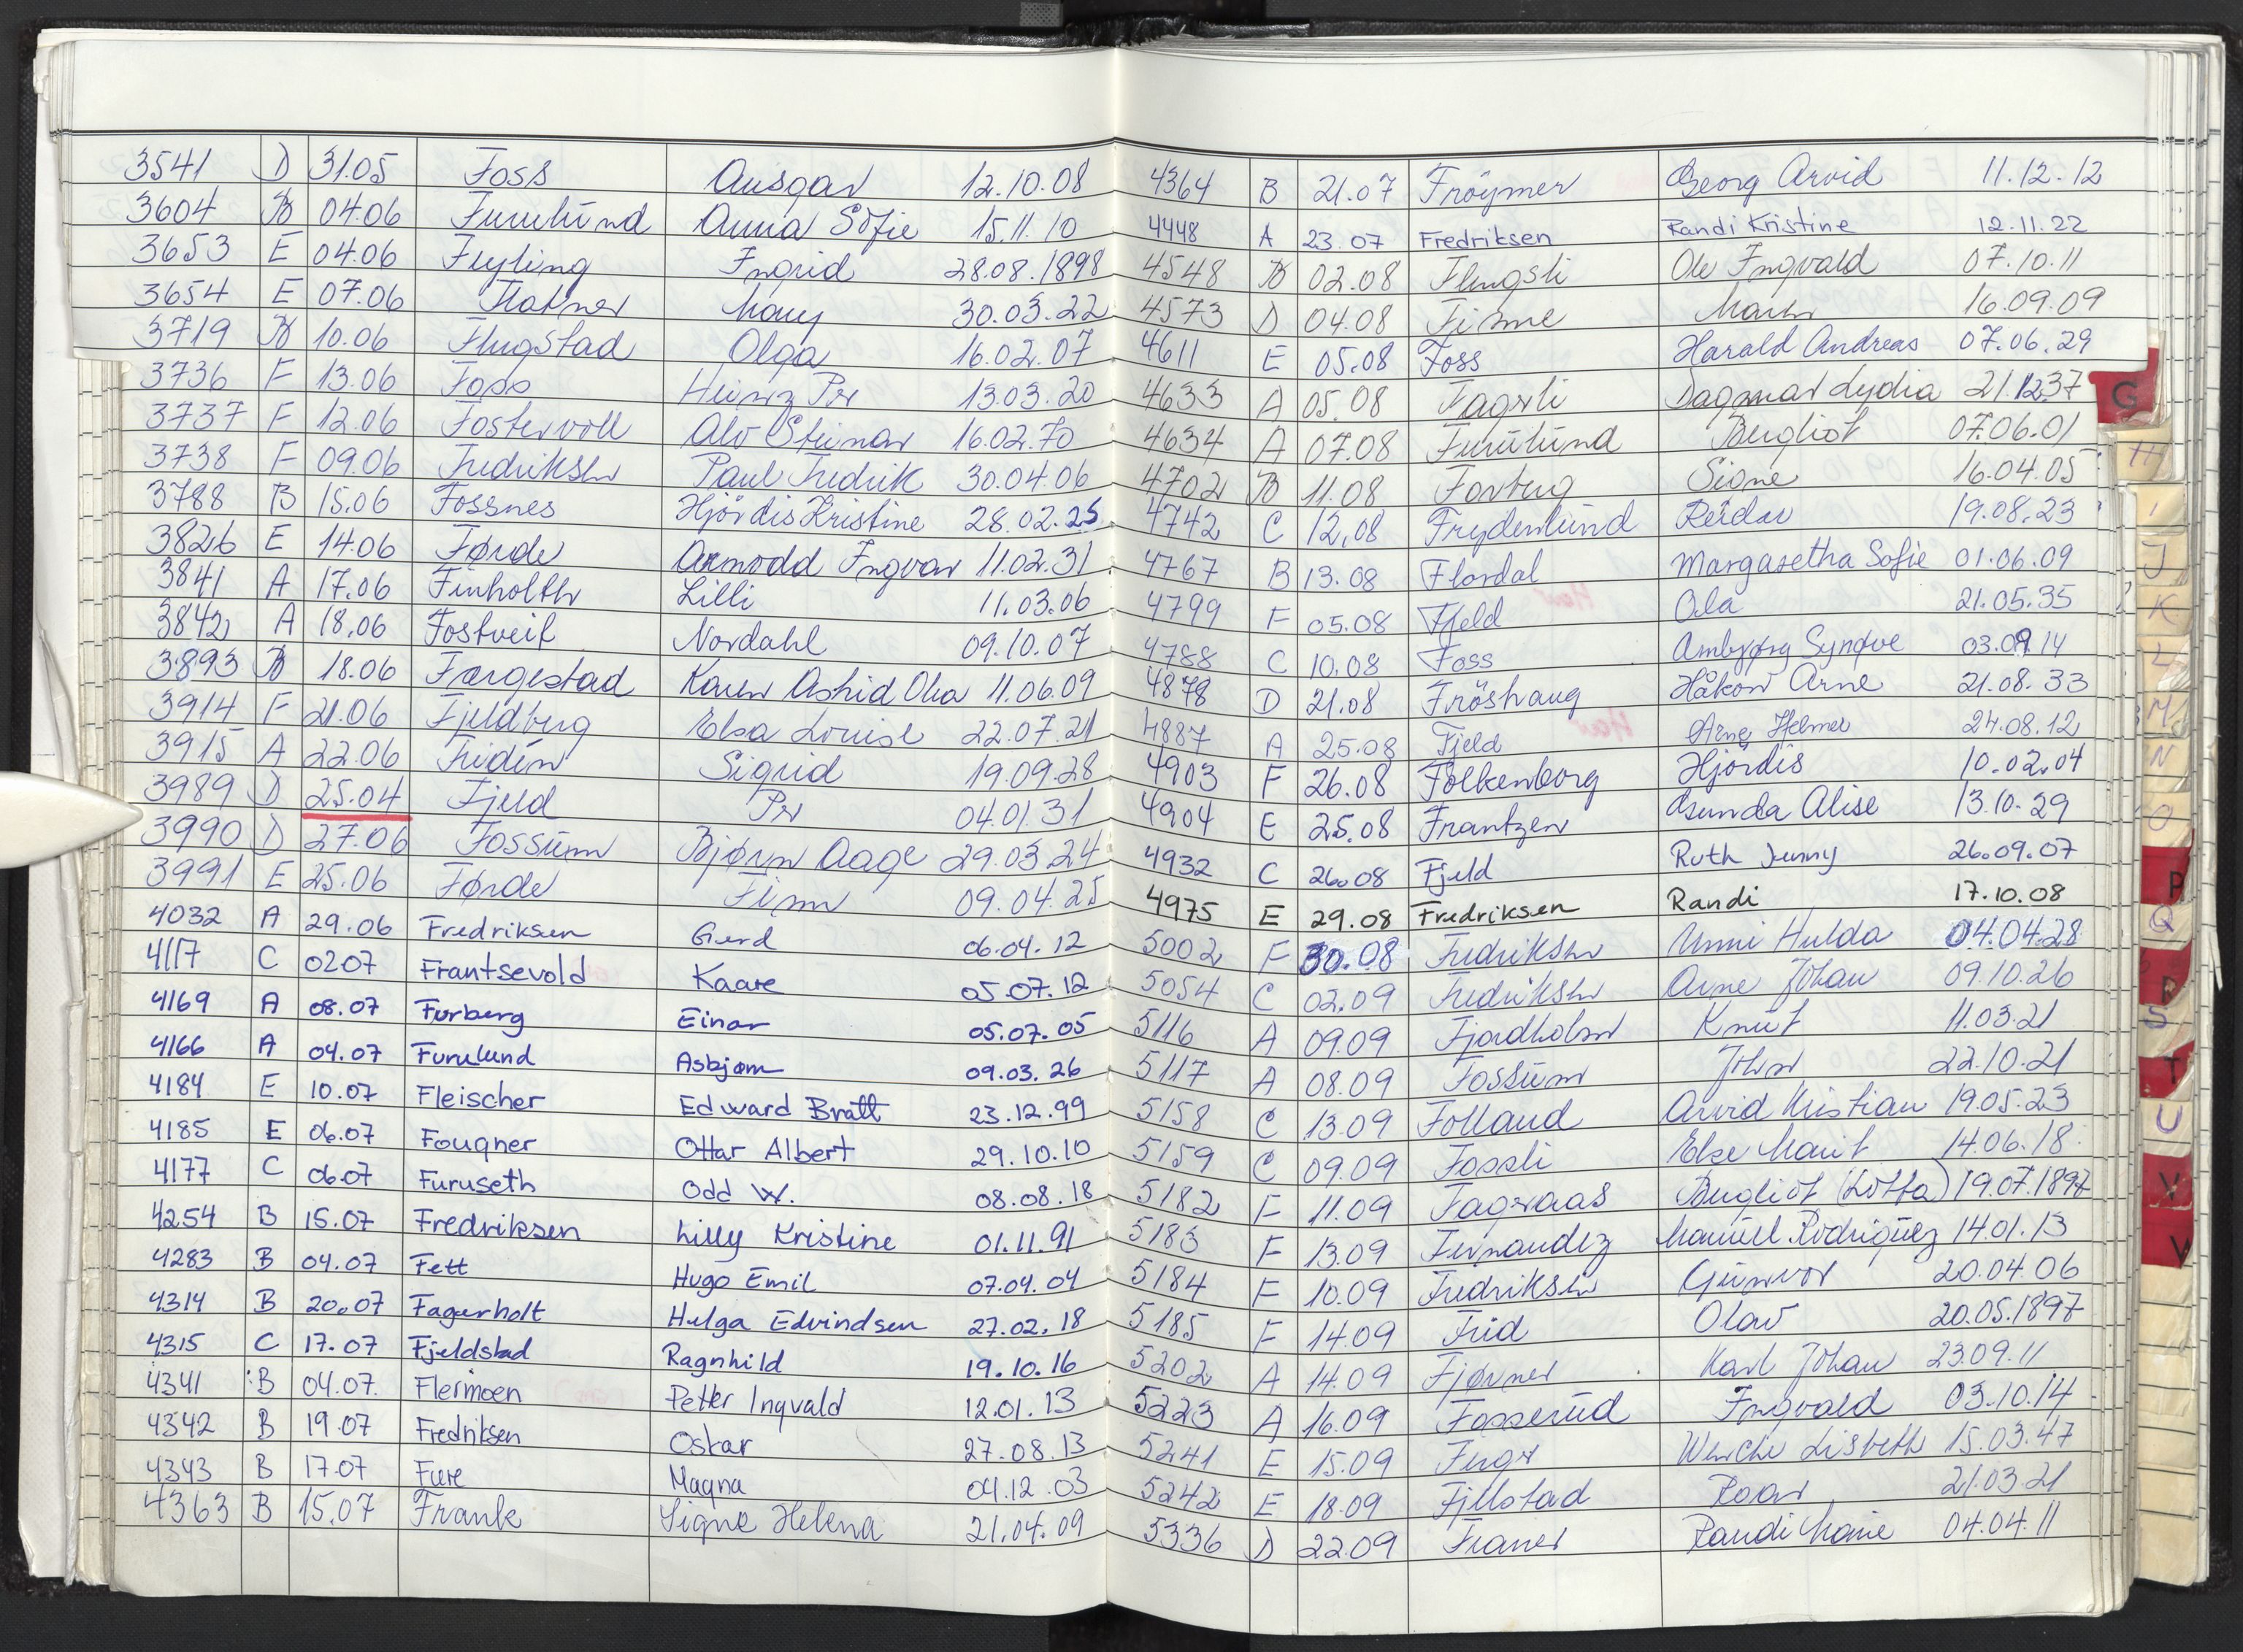 3541 D 31.05 Foss Ansgar 12.10.08
3604 B 04.06 Furulund Anna Sofie 15.11.10
3653 E 04.06 Flyling Ingrid 28.08.1898
3654 E 07.06 Flatner Mary 30.03.22
3719 B 10.06 Flugstad Olga 16.02.07
3736 F 13.06 Foss Heinz Per 13.03.20
3737 F 12.06 Fostervoll Alv Steinar 16.02.70
3738 F 09.06 Fredriksen Paul Fredrik 30.04.06
3788 B 15.06 Fossnes Hjördis Kristine 28.02.25
3826 E 14.06 Førde Armodd Ingvar 11.02.31
3841 A 17.06 Finholthr Lilli 11.03.06
3842 A 18.06 Fostveit Nordahl 09.10.07
3893 B 18.06 Færgestad Karen Astrid Olea 11.06.09
3914 F 21.06 Fjeldberg Elsa Louise 22.07.21
3915 A 22.06 Fridén Sigrid 19.09.28
3989 D 25.04 Fjeld Per 04.01.31
3990 D 27.06 Fossum Bjørn Aage 29.03.24
3991 E 25.06 Førde Finn 09.04.25
4032 A 29.06 Fredriksen Gerd 06.04.12
4117 C 02.07 Frantsevold Kaare 05.07.12
4169 A 08.07 Furberg Einar 05.07.05
4166 A 04.07 Furulund Asbjørn 09.03.26
4184 E 10.07 Fleischer Edward Bratt 23.12.99
4185 E 06.07 Fougner Ottar Albert 29.10.10
4177 C 06.07 Furuseth Odd W. 08.08.18
4254 B 15.07 Fredriksen Lilly Kristine 01.11.91
4283 B 04.07 Fett Hugo Emil 07.04.04
4314 B 20.07 Fagerholt Helga Edvindsen 27.02.18
4315 C 17.07 Fjeldstad Ragnhild 19.10.16
4341 B 04.07 Flermoen Petter Ingvald 12.01.13
4342 B 19.07 Fredriksen Oskar 27.08.13
4343 B 17.07 Fure Magna 04.12.03
4363 B 15.07 Frank Signe Helena 21.04.09
4364 B 21.07 Fröymer Georg Arvid 11.12.12
4448 A 23.07 Fredriksen Randi Kristine 12.11.22
4548 B 02.08 Flugsli Ole Ingvald 07.10.11
4573 D 04.08 Finne Maren 16.09.09
4611 E 05.08 Foss Harald Andreas 07.06.29
4633 A 05.08 Fagerli Dagmar Lydia 21.12.37
4634 A 07.08 Furulund Bergliot 07.06.01
4702 B 11.08 Forberg Signe 16.04.05
4742 C 12.08 Frydenlund Reidar 19.08.23
4767 B 13.08 Flordal Margaretha Sofie 01.06.09
4799 F 05.08 Fjeld Ola 21.05.35
4788 C 10.08 Foss Ambjørg Synøve 03.09.14
4878 D 21.08 Fröshaug Håkon Arne 21.08.33
4887 A 25.08 Fjeld Arne Helmer 24.08.12
4903 F 26.08 Folkenborg Hjördis 10.02.04
4904 E 25.08 Frantzen Gunda Alise 13.10.29
4932 C 26.08 Fjeld Ruth Jenny 26.09.07
4975 E 29.08 Fredriksen Randi 17.10.08
5002 F 30.08 Fredriksen Unni Hulda 04.04.28
5054 C 02.09 Fredriksen Arne Johan 09.10.26
5116 A 09.09 Fjordholm Knut 11.03.21
5117 A 08.09 Fossum John 22.10.21
5158 C 13.09 Folland Arvid Kristian 19.05.23
5159 C 09.09 Fossli Else Marit 14.06.18
5182 F 11.09 Fagraas Bergliot (Lotta) 19.07.1897
5183 F 13.09 Fernandez Manuel Rodriguez 14.01.13
5184 F 10.09 Fredriksen Gunvor 20.04.06
5185 F 14.09 Frid Olav 20.05.1897
5202 A 14.09 Fjørner Karl Johan 23.09.11
5223 A 16.09 Fosserud Ingvald 03.10.14
5241 E 15.09 Finger Wenche Lisbeth 15.03.47
5242 E 18.09 Fjellstad Roar 21.03.21
5336 D 22.09 Framer Randi Marie 04.04.11
G
H
I
J
K
L
M
N
O
P
Q
R
S
T
U
V